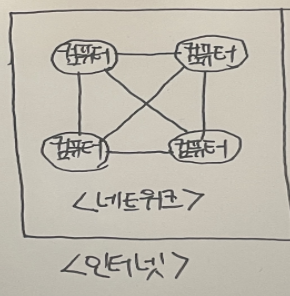 컴퓨터 컴퓨터
컴퓨터 컴퓨터
<네트워크>
<인터넷>